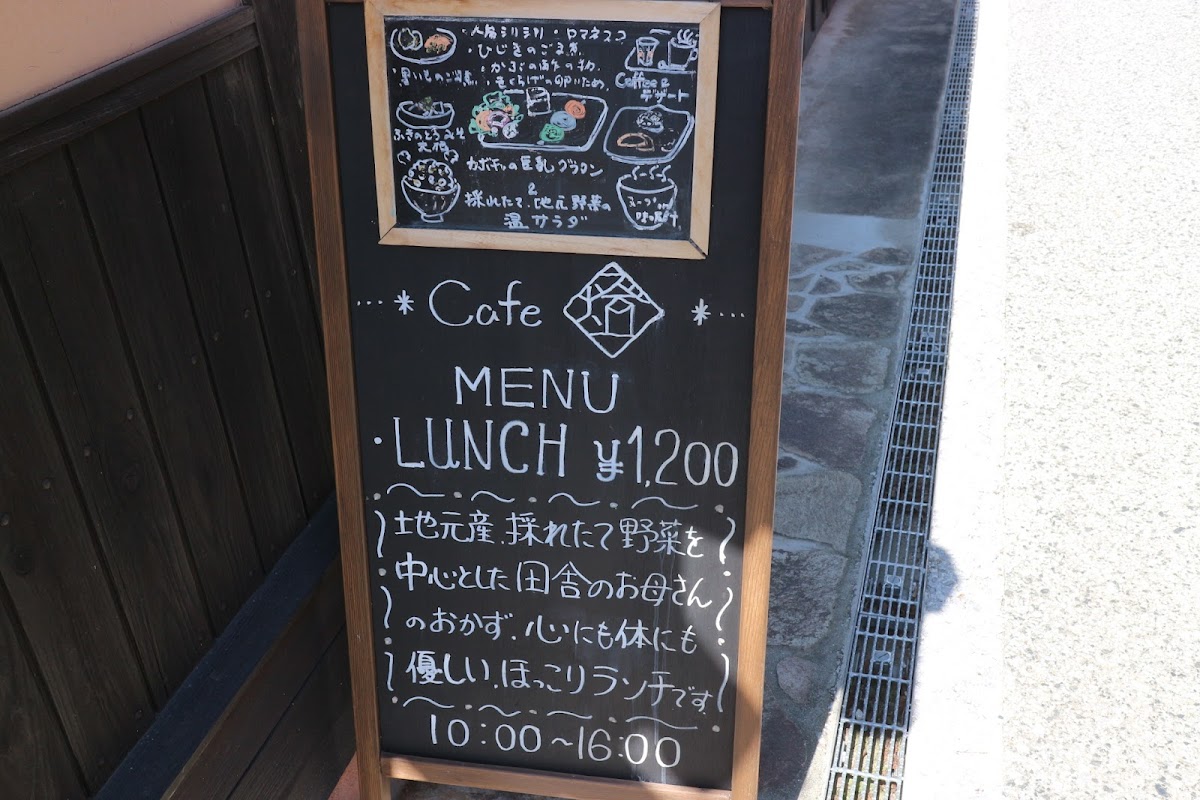 人参シリシリ・ロマネスコ
・ひじきのごま煮
・かぶの酢の物
・黒いものご煮
・きくらげの卵いため
Coffee &
デザート
ふきのとうみそ
大根
カボチャの豆乳グラタン
&
採れたて、地元野菜の
温サラダ
スープ
Cafe
MENU
・LUNCH ¥1,200
地元産、採れたて野菜を
中心とした田舎のお母さん
のおかず、心にも体にも
優しい、ほっこりランチです
10:00~16:00